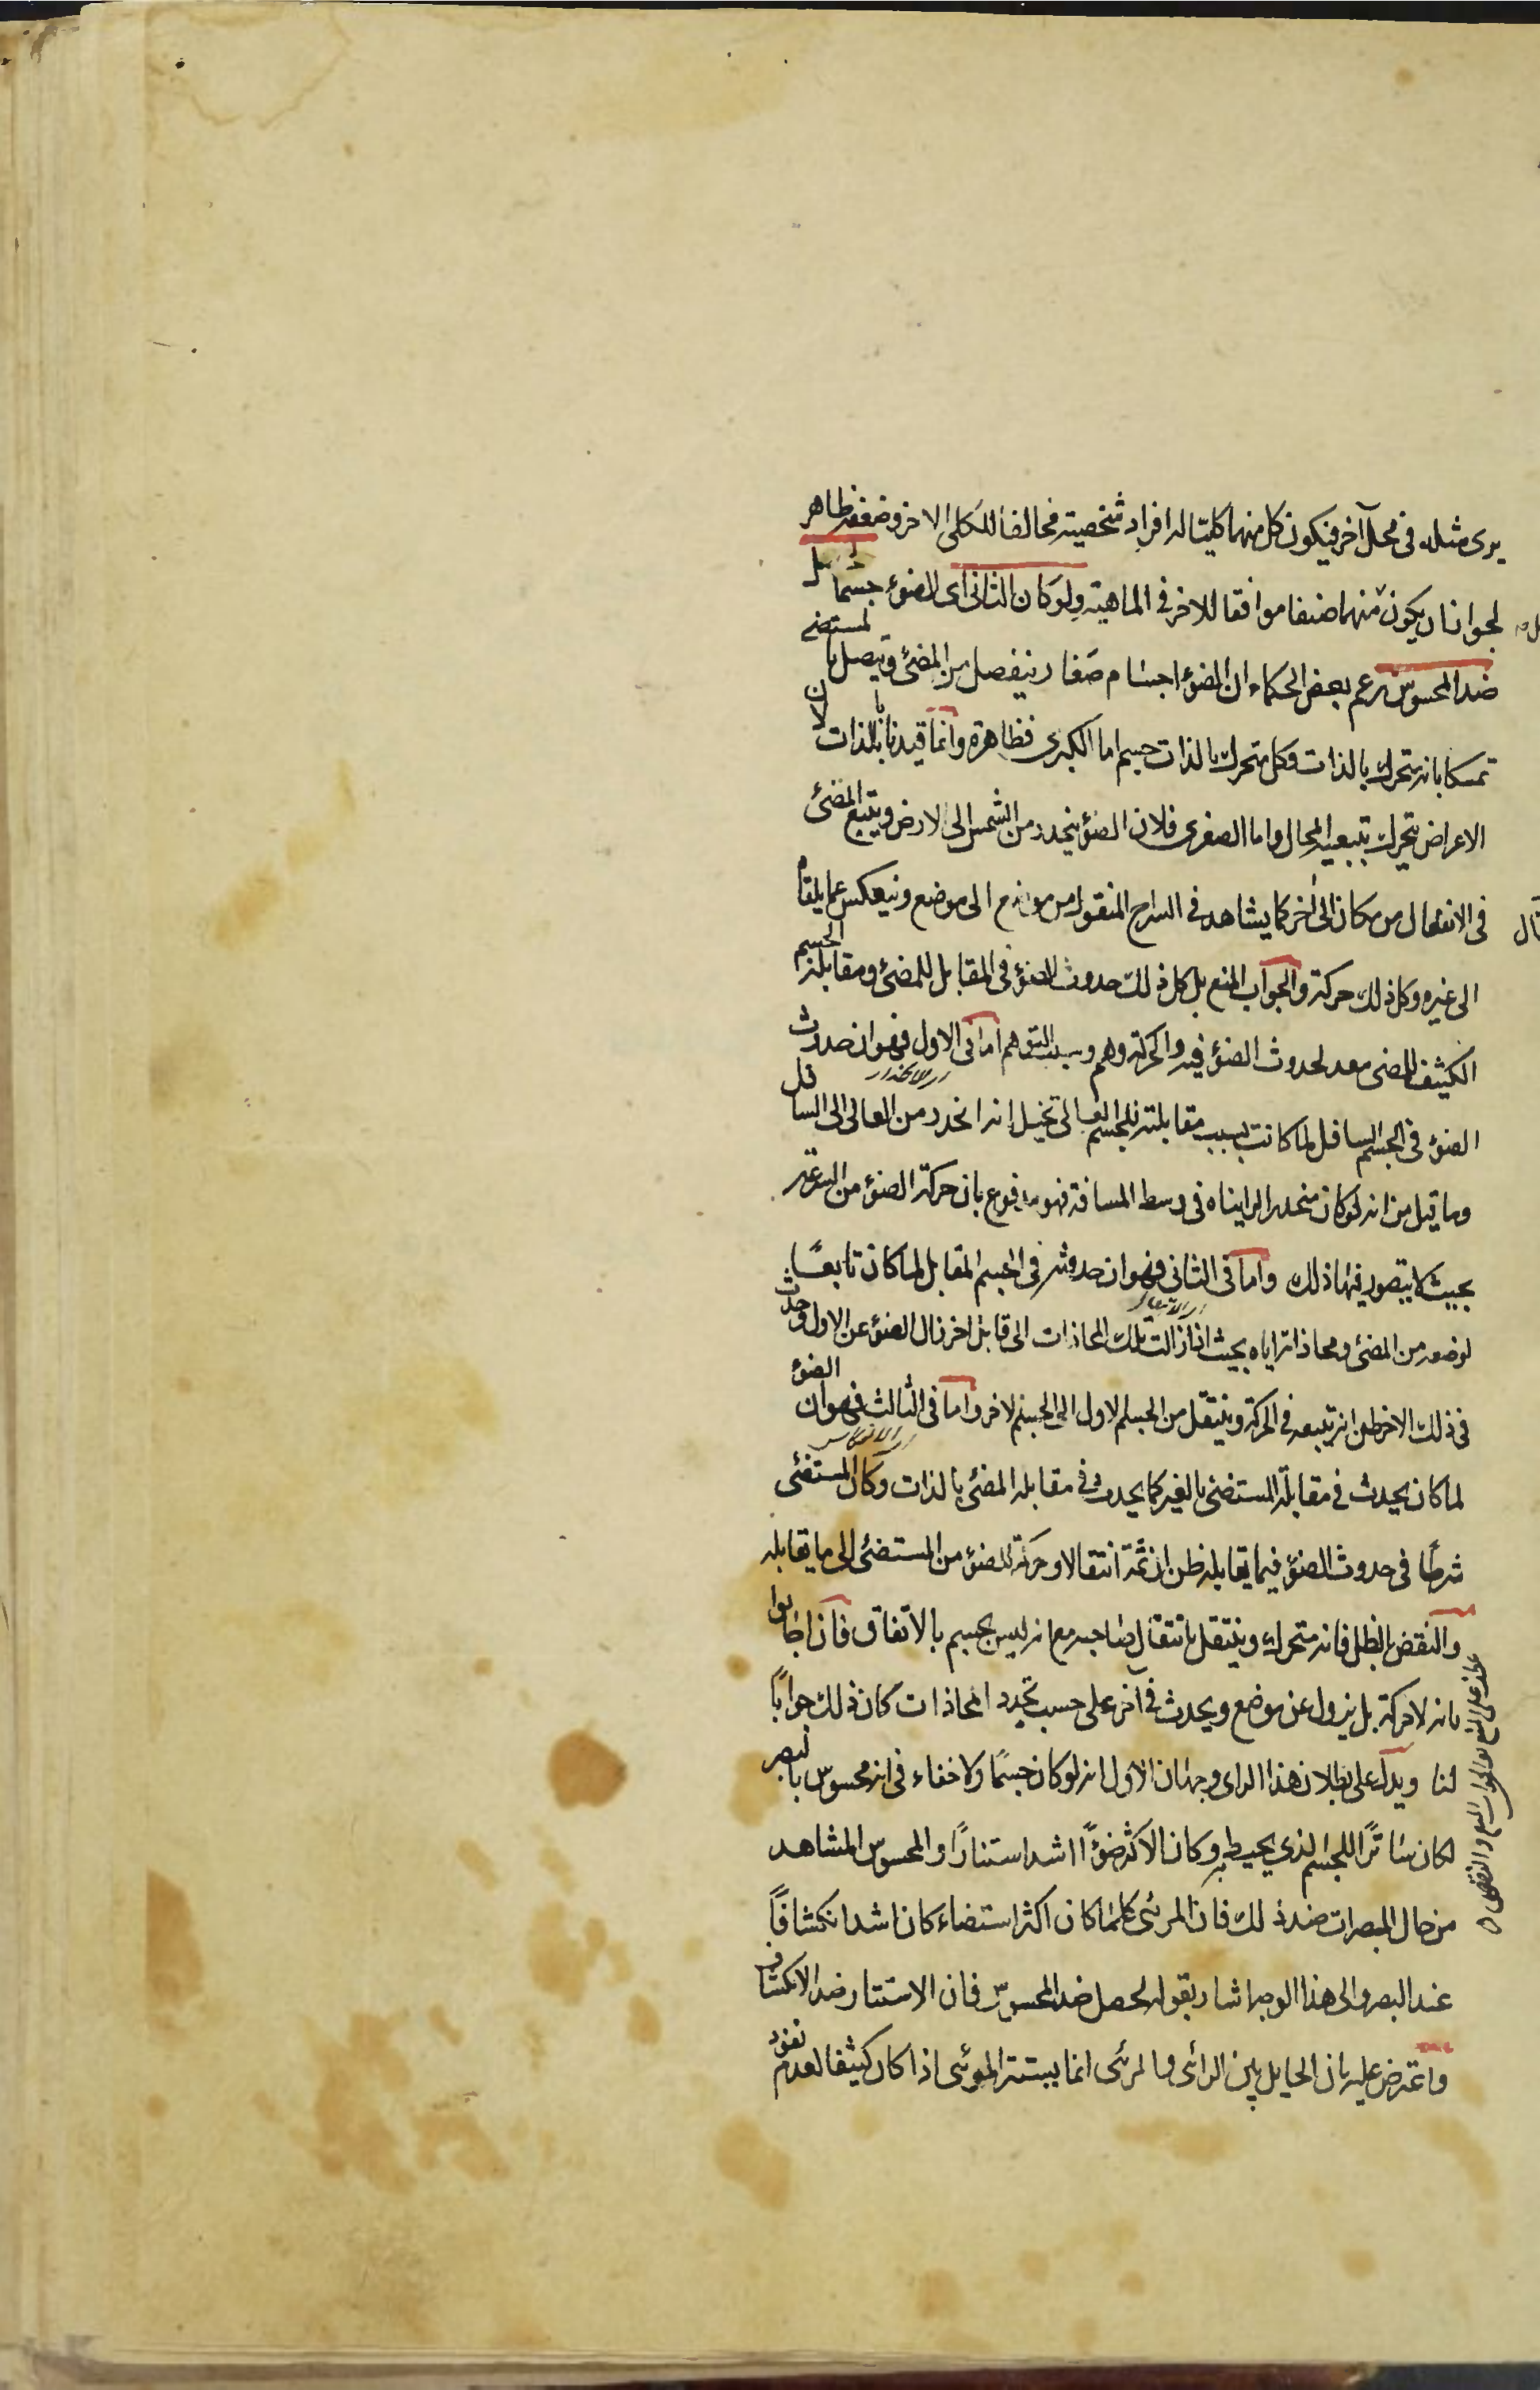 يرى مثله فى محل آخر فيكون كل منهما كليتا له افراد شخصية مخالفا للكلى الاخر وضعفه ظاهر
لجواز ان يكون منهما صنفا موافقا للاخر فى الماهية ولو كان الثانى اى الضوء جسما حصل
ضد المحسوس زعم بعض الحكماء ان الضوء اجسام صغار ينفصل من المضئ ويتصل بالمستضئ
تمسكا بانه متحرك بالذات وكل متحرك بالذات جسم اما الكبرى فظاهرة وانما قيدنا بالذات لان
الاعراض يتحرك بتبعية المحال واما الصغرى فلان الضوء ينحدر من الشمس الى الارض ويتبع المضئ
فى الانتقال من مكان الى آخر كما يشاهد فى السراج المنقول من موضع الى موضع وينعكس عما يلقاه
الى غيره وكل ذلك حركة والجواب المنع بل كل ذلك حدوث الضوء فى المقابل للمضئ ومقابلة الجسم
الكثيف للمضى معد لحدوث الضوء فيه والحركة وهم وسبب التوهم اما فى الاول فهو ان حدوث
اى الانحدار
الضوء فى الجسم السافل لما كانت بسبب مقابلته للجسم العالى تخيل انه انحدر من العالى الى السافل
وما قيل من انه لو كان منحدرا لرايناه فى وسط المسافة فهو مدفوع بان حركة الضوء من السرعة
بحيث لا يتصور فيها ذلك واما فى الثانى فهو ان حدوثه فى الجسم المقابل لما كان تابعًا
لوضعه من المضئ ومحاذاته اياه بحيث اذا زالت تلك المحاذات الى قابل اخر زال الضوء عن الاول وحدث
فى ذلك الاخر ظن انه يتبعه فى الحركة وينتقل من الجسم الاول الى الجسم الاخر واما فى الثالث فهو ان الضوء
اى الانعكاس
لما كان يحدث فى مقابلة المستضئ بالغير كما يحدث فى مقابلة المضئ بالذات وكان المستضئ
شرطًا فى حدوث الضوء فيما يقابله ظن ان ثمة انتقالا وحركة للضوء من المستضئ الى ما يقابله
والنقض بالظل فانه متحرك وينتقل بانتقال صاحبه مع انه ليس بجسم بالاتفاق فان اجابوا
بانه لا حركة بل يزول عن موضع ويحدث فى آخر على حسب تجدد المحاذات كان ذلك جوابًا
لنا ويدل على بطلان هذا الراى وجهان الاول انه لو كان جسمًا ولا خفاء فى انه محسوس بالبصر
لكان ساترًا للجسم الذى يحيط به وكان الاكثر ضوءًا اشد استتارًا والمحسوس المشاهد
من حال المبصرات ضد ذلك فان المرئى كلما كان اكثر استضاء كان اشد انكشافًا
عند البصر والى هذا الوجه اشار بقوله لحصل ضد المحسوس فان الاستتار ضد الانكشاف
واعترض عليه بان الحايل بين الرائى والمرئى انما يستتر المرئى اذا كان كثيفا لعدم نفوذ